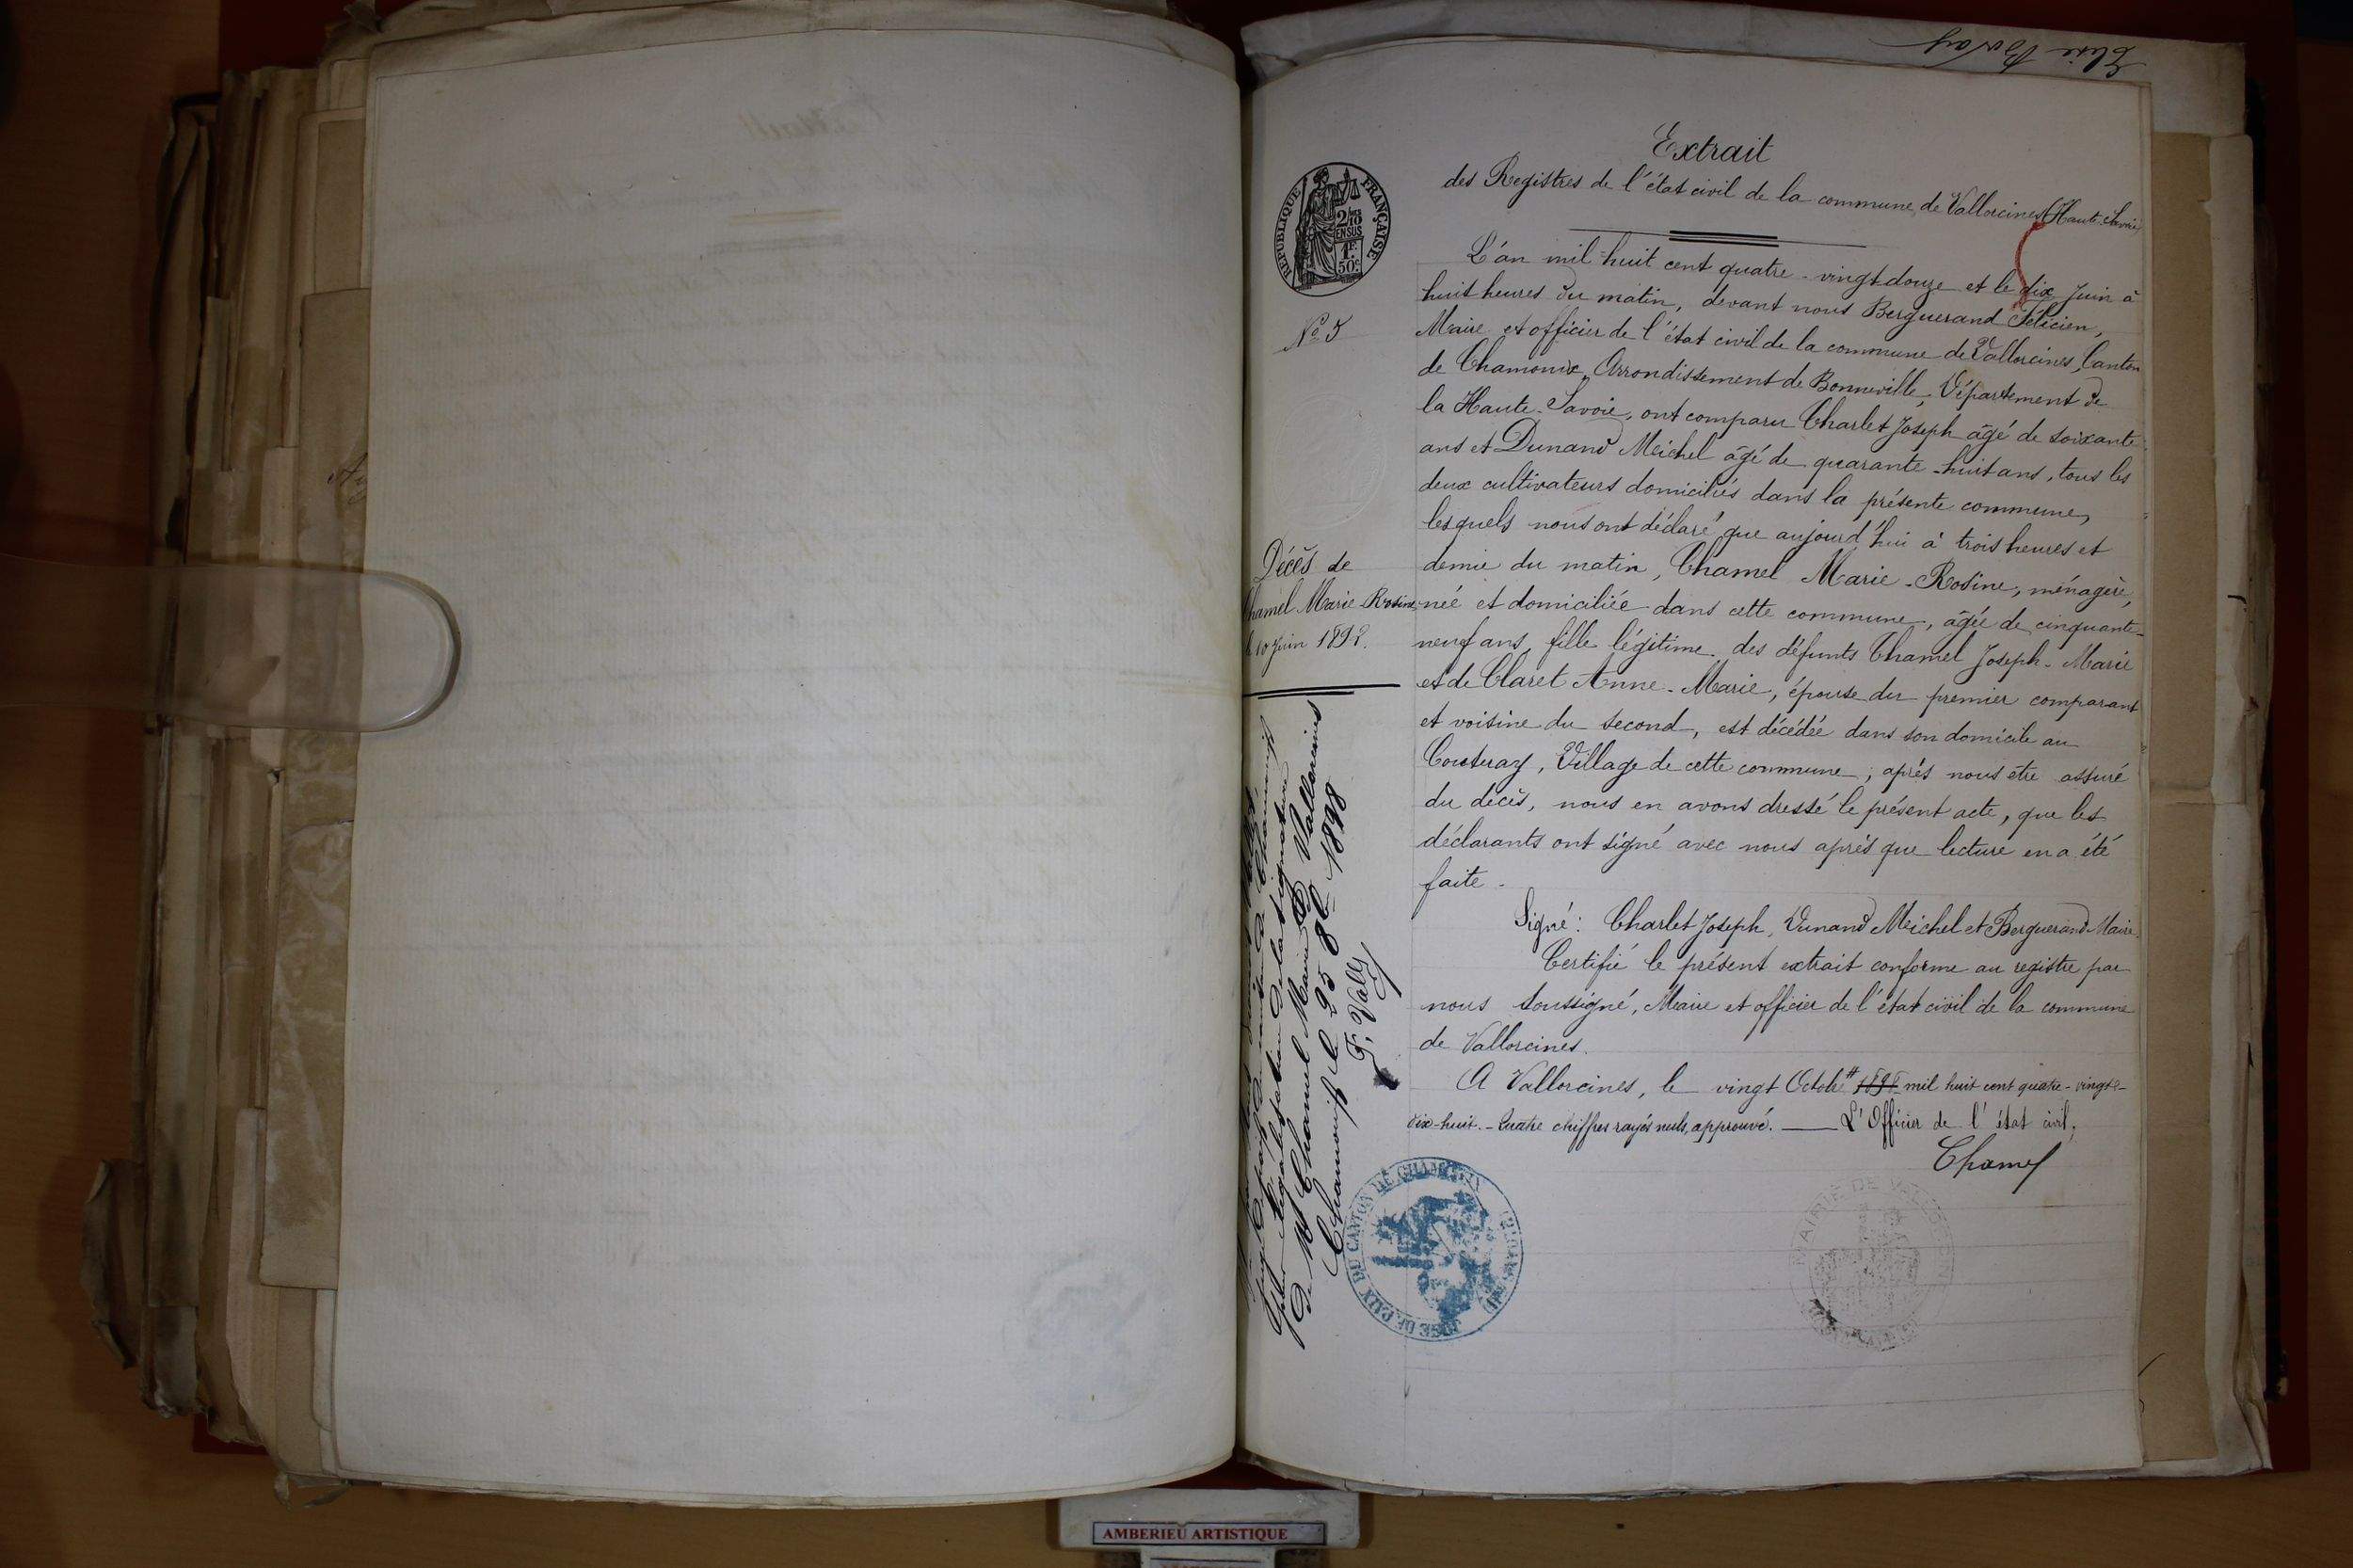 Extrait
des Registres de l'état civil de la commune de Vallorcines (Haute-Savoie)
RÉPUBLIQUE FRANÇAISE
2/10
EN SUS
1F.
50c
N° 5
L'an mil-huit cent quatre-vingt douze et le dix Juin à
huit heures du matin, devant nous Berguerand Félicien,
Maire et officier de l'état civil de la commune de Vallorcines, Canton
de Chamonix, Arrondissement de Bonneville, Département de
la Haute-Savoie, ont comparu Charlet Joseph âgé de soixante
ans et Dunand Meichel âgé de quarante-huit ans, tous les
deux cultivateurs domiciliés dans la présente commune,
lesquels nous ont déclaré que aujourd'hui à trois heures et
demie du matin, Chamel Marie-Rosine, ménagère,
née et domiciliée dans cette commune, âgée de cinquante-
neuf ans, fille légitime des défunts Chamel Joseph-Marie
et de Claret Anne-Marie, épouse du premier comparant
et voisine du second, est décédée dans son domicile au
Couteray, Village de cette commune; après nous être assuré
du décès, nous en avons dressé le présent acte, que les
déclarants ont signé avec nous après que lecture en a été
faite.
Décès de
Chamel Marie-Rosine
le 10 Juin 1892.
Signé: Charlet Joseph, Dunand Meichel et Berguerand Maire.
Certifié le présent extrait conforme au registre par
nous soussigné, Maire et officier de l'état civil de la commune
de Vallorcines.
A Vallorcines, le vingt Octobre # 1898 mil huit cent quatre-vingt-
dix-huit. - Quatre chiffres rayés nuls, approuvé. — L'Officier de l'état civil,
Chamel
pour légalisation de la signature
de Mr Chamel Maire de Vallorcines
Chamonix le 25 8b 1898
JUGE DE PAIX DU CANTON DE CHAMONIX
MAIRIE DE
AMBERIEU ARTISTIQUE